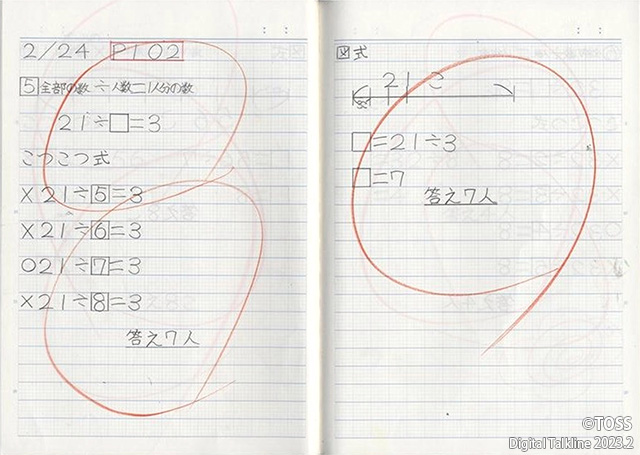 2/24 P102
5 全部の数÷人数=1人分の数
21÷□=3
こつこつ式
×21÷5=3
×21÷6=3
○21÷7=3
×21÷8=3
答え7人
図式
21こ
□=21÷3
□=7
答え7人
©TOSS
Digital Talkline 2023.2